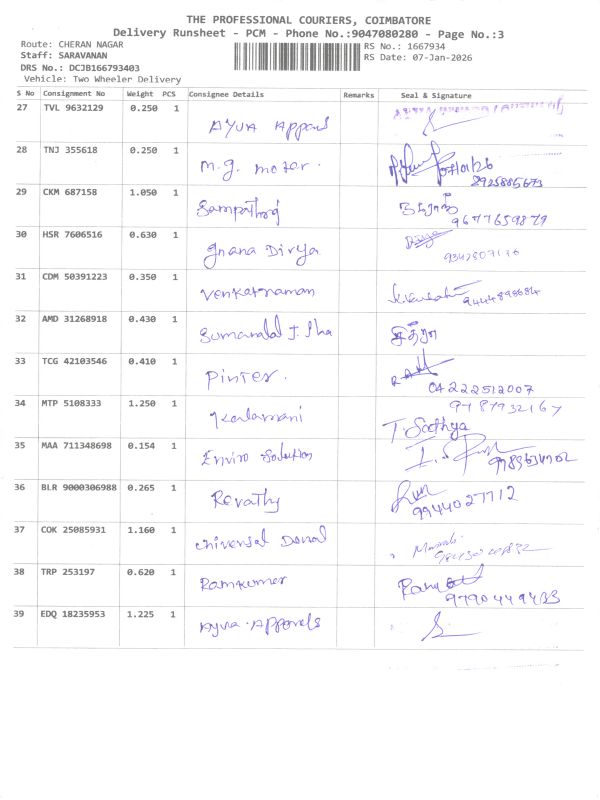 THE PROFESSIONAL COURIERS, COIMBATORE
Delivery Runsheet - PCM - Phone No.:9047080280 - Page No.:3
Route: CHERAN NAGAR
RS No.: 1667934
Staff: SARAVANAN
RS Date: 07-Jan-2026
DRS No.: DCJB166793403
Vehicle: Two Wheeler Delivery
S No Consignment No Weight PCS Consignee Details Remarks Seal & Signature
27 TVL 9632129 0.250 1
AYUA
28 TNJ 355618 0.250 1
M.G. Moter.
8925885673
29 CKM 687158 1.050 1
Sampathraj
9677659879
30 HSR 7606516 0.630 1 Divya
Gnana Divya
31 CDM 50391223 0.350 1
Venkatraman
9444898684
32 AMD 31268918 0.430 1
Sumanalal J. Sha சித்ரா
33 TCG 42103546 0.410 1 RAM
Pinter. 04222512007
34 MTP 5108333 1.250 1 9787932167
Kalamani T. Sathya
35 MAA 711348698 0.154 1
Enviro Solution
36 BLR 9000306988 0.265 1
Revathy 9944027712
37 COK 25085931 1.160 1
38 TRP 253197 0.620 1
Ramkumer
9790449433
39 EDQ 18235953 1.225 1
Ayua Apparels